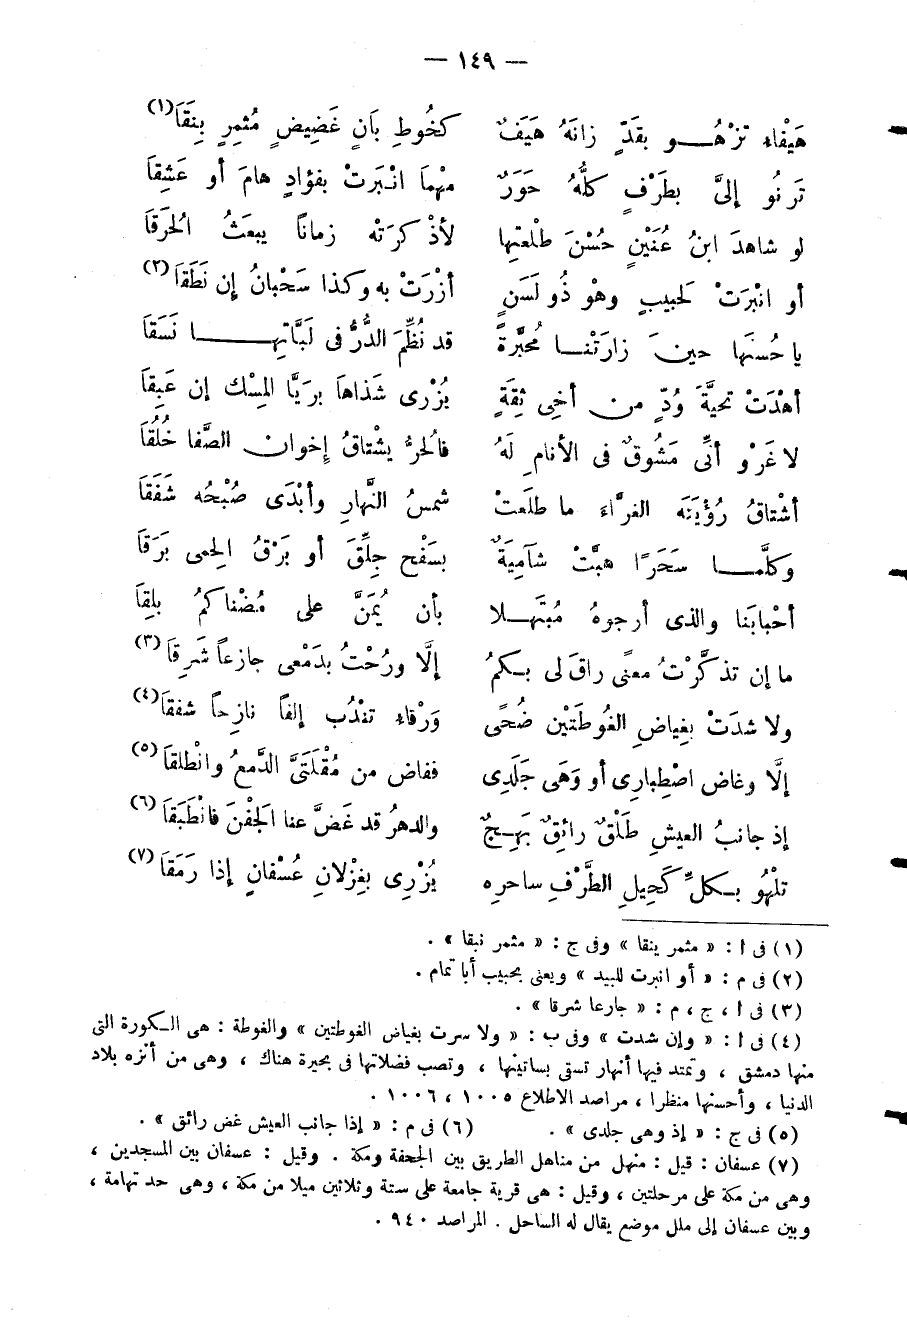 — ١٤٩ —
هَيْفاء تزْهُــو بقَدٍّ زانَهُ هَيَفٌ كخُوطِ بَانٍ غَضِيضٍ مُثمِرٍ بِنَقَا(١)
تَرنُو إلىَّ بطَرْفٍ كلُّهُ حَوَرٌ مهْمَا انْبَرَتْ بفؤادٍ هامَ أو عَشِقَا
لو شاهدَ ابنُ عُنَيْنٍ حُسْنَ طلْعتِها لأذْكرَتْه زماناً يبعَثُ الحُرَقَا
أو انبرَتْ لحَبيبٍ وهْو ذُو لَسَنٍ أزْرَتْ به وكذا سَحْبانُ إن نَطَقَا(٢)
يا حُسنَها حينَ زارَتْنــا مُحبَّرةً قد نُظِّمَ الدُّرُّ فى لَبَّاتِهــــا نَسَقَا
أهْدَتْ تحيَّةَ وُدٍّ من أخِى ثِقَةٍ يُزْرِى شَذاهَا برَيَّا المِسْك إن عَبِقَا
لا غَرْو أنِّى مَشُوقٌ فى الأنامِ لَهُ فالحُرُّ يشْتاقُ إخوانَ الصَّفا خُلُقَا
أشْتاقُ رُؤيَتَه الغرَّاءَ ما طلَعتْ شمسُ النَّهارِ وأبْدَى صُبْحُه شَفَقَا
وكلَّمــا سَحَرًا هبَّتْ شآمِيَةٌ بسَفْح جِلِّقَ أو بَرْقُ الحِمى بَرَقَا
أحْبابَنا والذى أرجوهُ مُبْتَهــلا بأن يُمَنَّ على مُضْناكمُ بلِقَا
ما إن تذكَّرْتُ معنًى راقَ لى بكمُ إلَّا ورُحْتُ بدَمْعى جازعاً شَرِقَا(٣)
ولا شدَتْ بغِياضِ الغُوطَتَيْن ضُحًى وَرْقاء تنْدُب إلفاً نازِحاً شفقَا(٤)
إلَّا وغاض اصْطِبارِى أو وَهَى جَلَدِى ففاض من مُقْلَتَىَّ الدَّمعُ وانْطلقَا(٥)
إذ جانبُ العيشِ طَلْقٌ رائِقٌ بَهِــجٌ والدهرُ قد غَضَّ عنا الجَفْنَ فانْطَبَقَا(٦)
تلْهُو بكلِّ كَحِيلِ الطَّرْفِ ساحرِه يُزْرِى بغِزْلانِ عُسْفانٍ إذا رَمَقَا(٧)
(١) فى ا : « مثمر ينقا » وفى ج : « مثمر نبقا » .
(٢) فى م : « أو انبرت للبيد » ويعنى بحبيب أبا تمام .
(٣) فى ا ، ج ، م : « جارعا شرقا » .
(٤) فى ا : « وإن شدت » وفى ب : « ولا سرت بغياض الغوطتين » والغوطة : هى الكورة التى
منها دمشق ، وتمتد فيها أنهار تسقى بساتينها ، وتصب فضلاتها فى بحيرة هناك ، وهى من أنزه بلاد
الدنيا ، وأحسنها منظرا ، مراصد الاطلاع ١٠٠٥ ، ١٠٠٦ .
(٥) فى ج : « إذ وهى جلدى » . (٦) فى م : « إذا جانب العيش غض رائق » .
(٧) عسفان : قيل : منهل من مناهل الطريق بين الجحفة ومكة . وقيل : عسفان بين المسجدين ،
وهى من مكة على مرحلتين ، وقيل : هى قرية جامعة على ستة وثلاثين ميلا من مكة ، وهى حد تهامة ،
وبين عسفان إلى ملل موضع يقال له الساحل . المراصد ٩٤٠ .